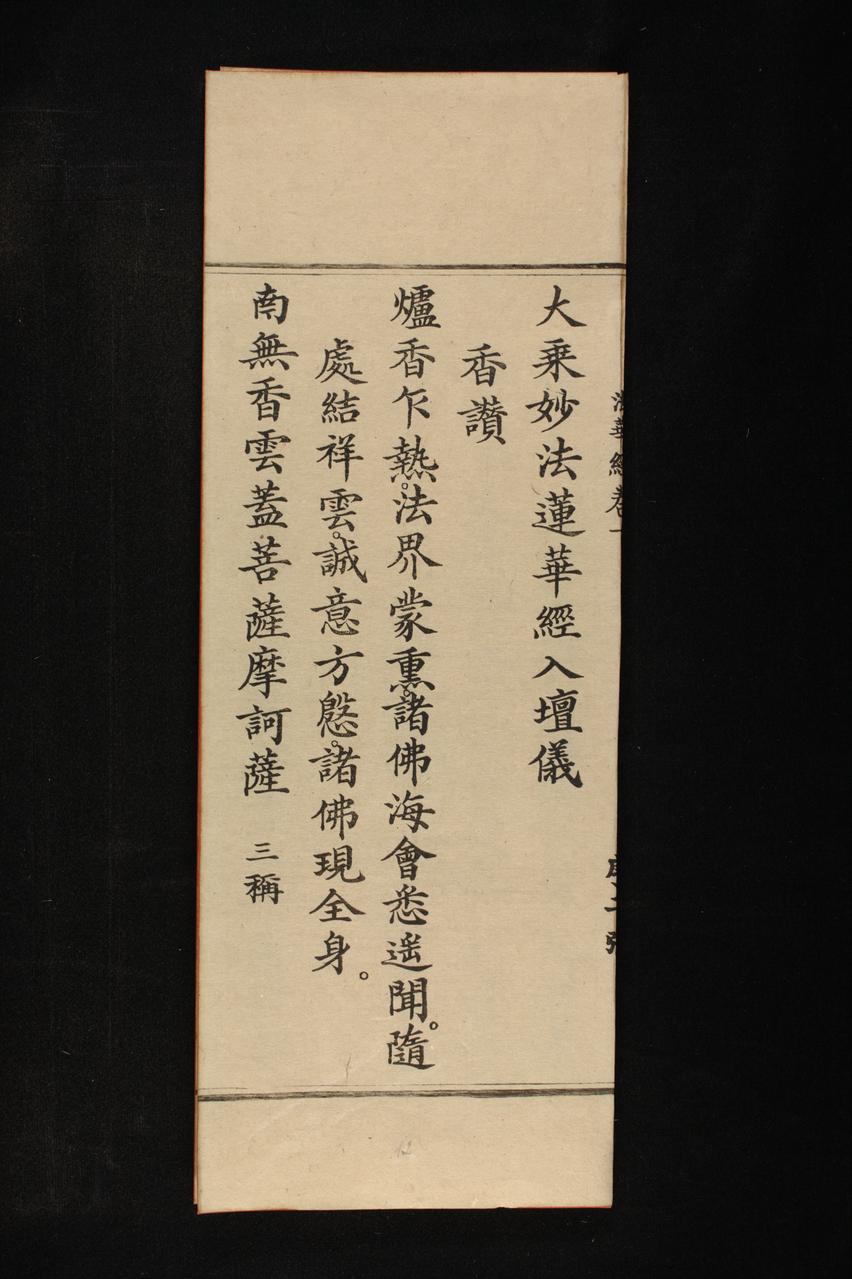 法華經卷一
大乗妙法蓮華經入壇儀
香讚
爐香乍熱。法界蒙熏。諸佛海會悉遥聞。隨
處結祥雲。誠意方慇。諸佛現全身。
南無香雲蓋菩薩摩訶薩 三稱